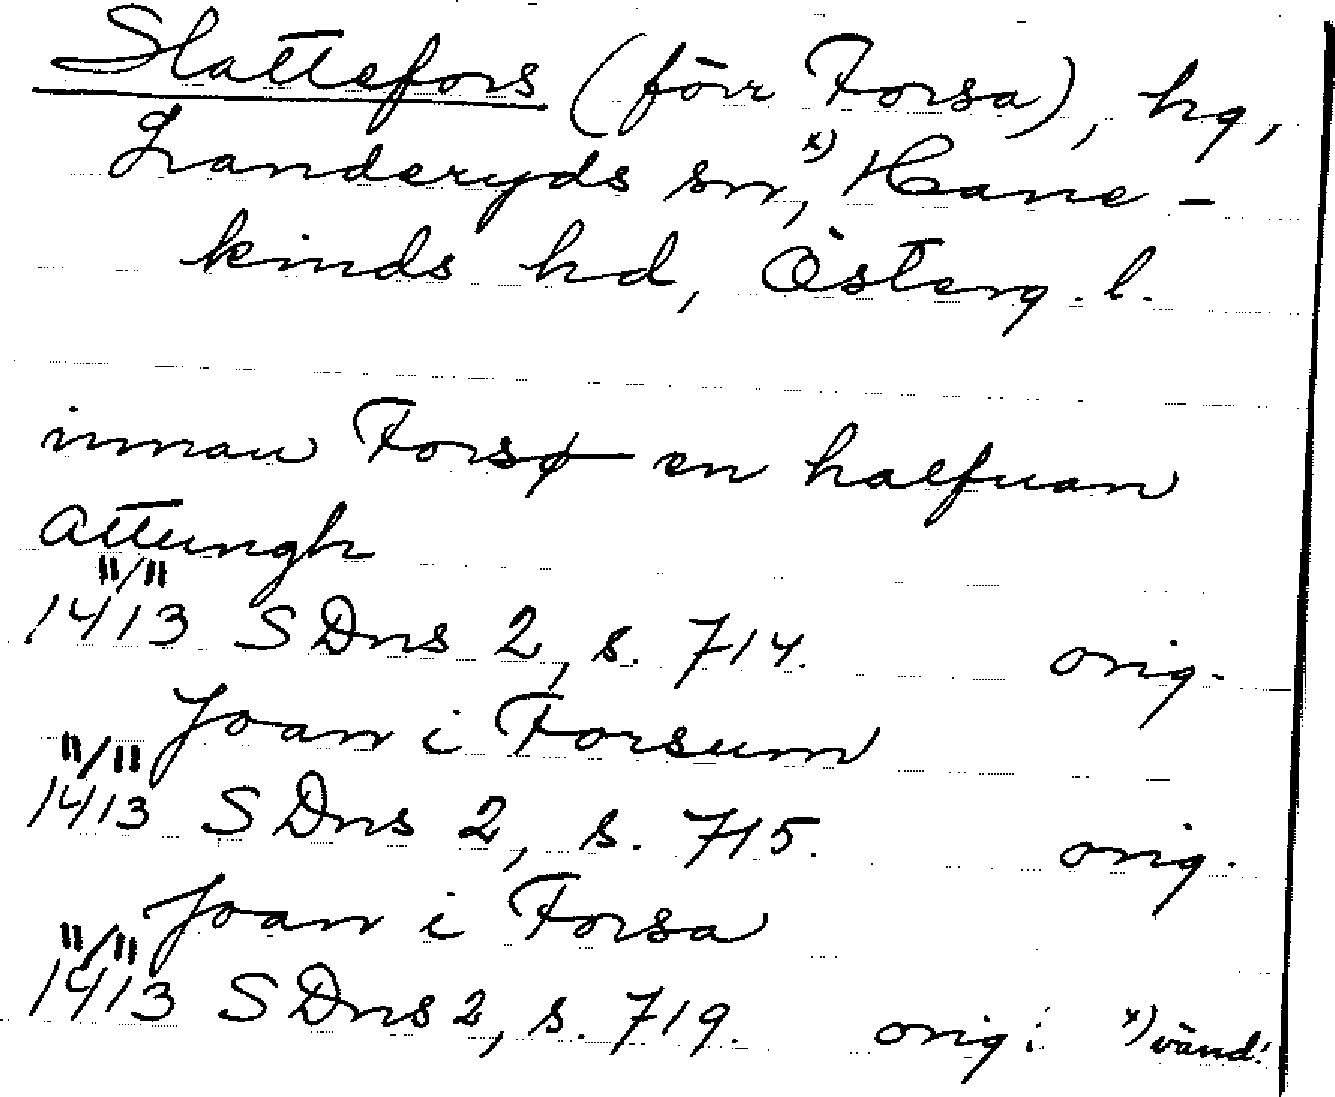 Slattefors (förr Forsa), hg,
Landeryds sn,x) Hane-
kinds hd, Österg. l.
innan Forsø en halfuan
attungh
11/11
1413 SDns 2, s. 714. orig.
Joan i Forsum
11/11
1413 SDns 2, s. 715. orig.
Joan i Forsa
11/11
1413 SDns 2, s. 719. orig. x) vänd!